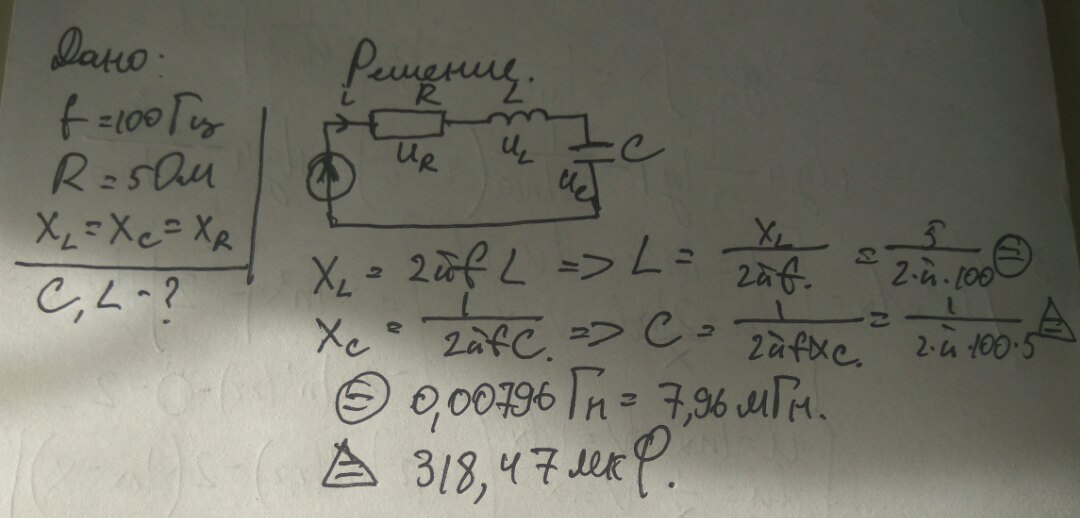 Дано:
f = 100 Гц
R = 5 Ом
X_L = X_C = X_R
C, L - ?
Решение.
i R L
U_R U_L U_C C
X_L = 2πfL => L = X_L / 2πf. = 5 / 2·π·100 ⊜
X_C = 1 / 2πfC. => C = 1 / 2πfX_C. = 1 / 2·π·100·5 △
⊜ 0,00796 Гн = 7,96 мГн.
△ 318,47 мкФ.